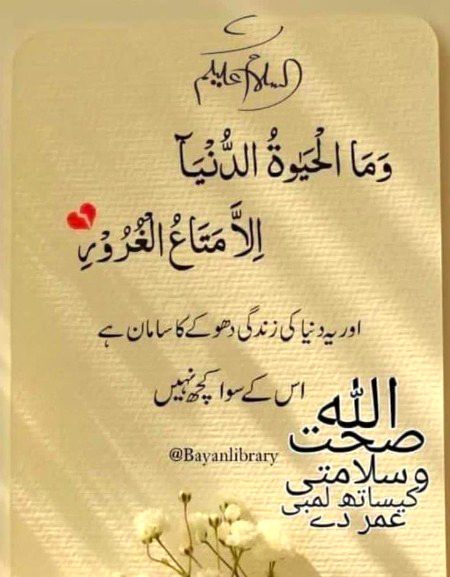 السلام علیکم
وَمَا الْحَيٰوةُ الدُّنْيَآ
اِلاَّ مَتَاعُ الْغُرُوْرِ
اور یہ دنیا کی زندگی دھوکے کا سامان ہے
اس کے سوا کچھ نہیں
@Bayanlibrary
اللہ
صحت
وسلامتی
کیساتھ لمبی
عمر دے